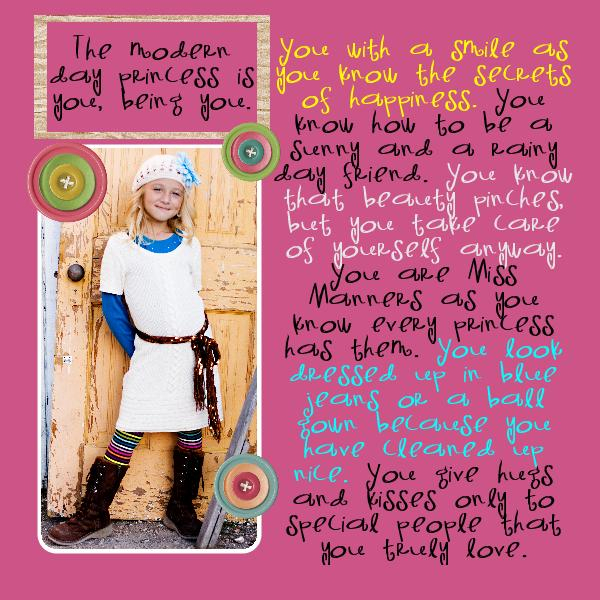 The modern
day princess is
you, being you.
You with a smile as
you know the secrets
of happiness. You
know how to be a
sunny and a rainy
day friend. You know
that beauty pinches,
but you take care
of yourself anyway.
You are Miss
Manners as you
know every princess
has them. You look
dressed up in blue
jeans or a ball
gown because you
have cleaned up
nice. You give hugs
and kisses only to
special people that
you truly love.